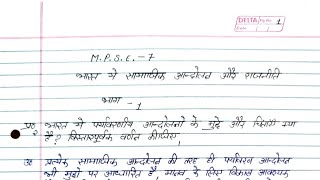 DELTA Pg No. 1
M.P.S.E. - 7
भारत में सामाजिक आन्दोलन और राजनीति
भाग - 1
प्र० भारत में पर्यावरणीय आन्दोलनों के मुद्दे और चिंताएं क्या
है? विस्तारपूर्वक वर्णन कीजिए,
उ० प्रत्येक सामाजिक आन्दोलन की तरह ही पर्यावरण आन्दोलन
भी मुद्दों पर आधारित है, मानव के लिए विकास आवश्यक